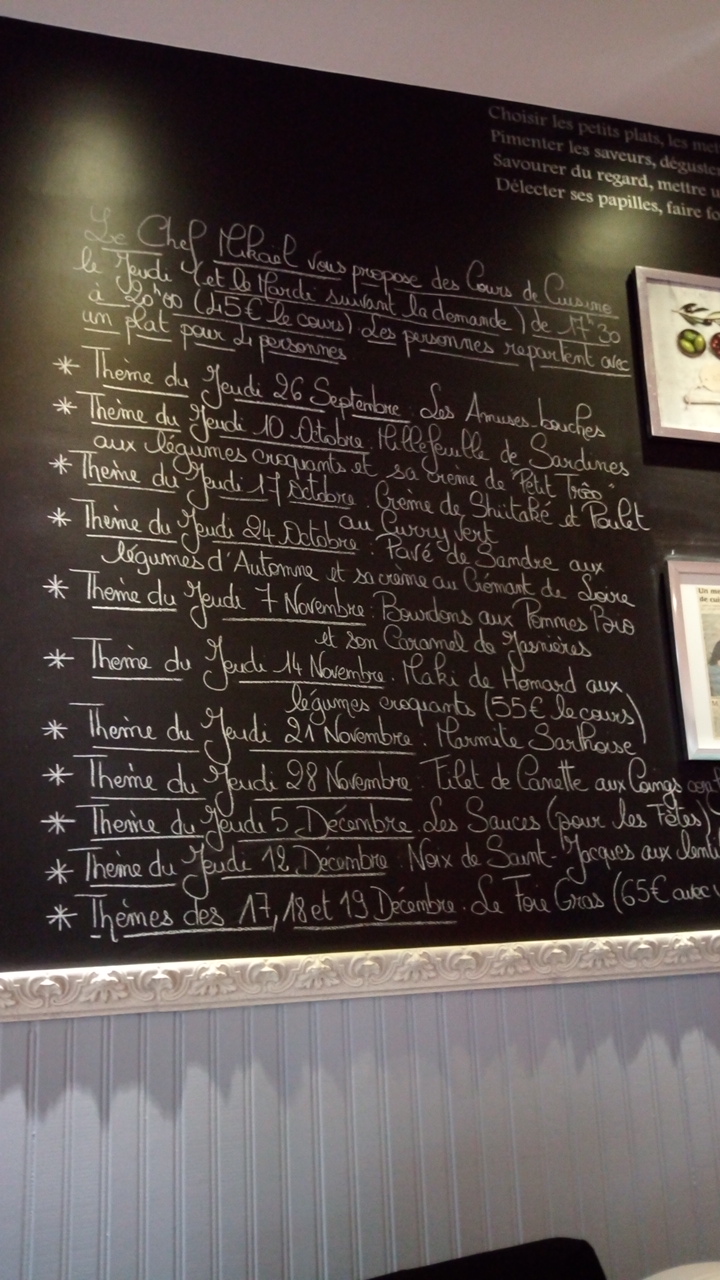 Choisir les petits plats, les
Pimenter les saveurs,
Savourer du regard, mettre
Délecter ses papilles, faire
Le Chef Mikaël vous propose des Cours de Cuisine
le Jeudi (et le Mardi suivant la demande) de 17h30
à 20h00 (45€ le cours) Les personnes repartent avec
un plat pour 4 personnes
* Thème du Jeudi 26 Septembre : Les Amuses-bouches
* Thème du Jeudi 10 Octobre : Millefeuille de Sardines
aux légumes croquants et sa crème de "Petit Trôo"
* Thème du Jeudi 17 Octobre : Crème de Shiitaké et Poulet
au Curry Vert
* Thème du Jeudi 24 Octobre : Pavé de Sandre aux
légumes d'Automne et sa crème au Crémant de Loire
* Thème du Jeudi 7 Novembre : Bourdons aux Pommes Bio
et son Caramel de Jasnières
* Thème du Jeudi 14 Novembre : Maki de Homard aux
légumes croquants (55€ le cours)
* Thème du Jeudi 21 Novembre : Marmite Sarthoise
* Thème du Jeudi 28 Novembre : Filet de Canette aux Coings
* Thème du Jeudi 5 Décembre : Les Sauces (pour les Fêtes)
* Thème du Jeudi 12 Décembre : Noix de Saint-Jacques aux
* Thèmes des 17, 18 et 19 Décembre : Le Foie Gras (65€ avec